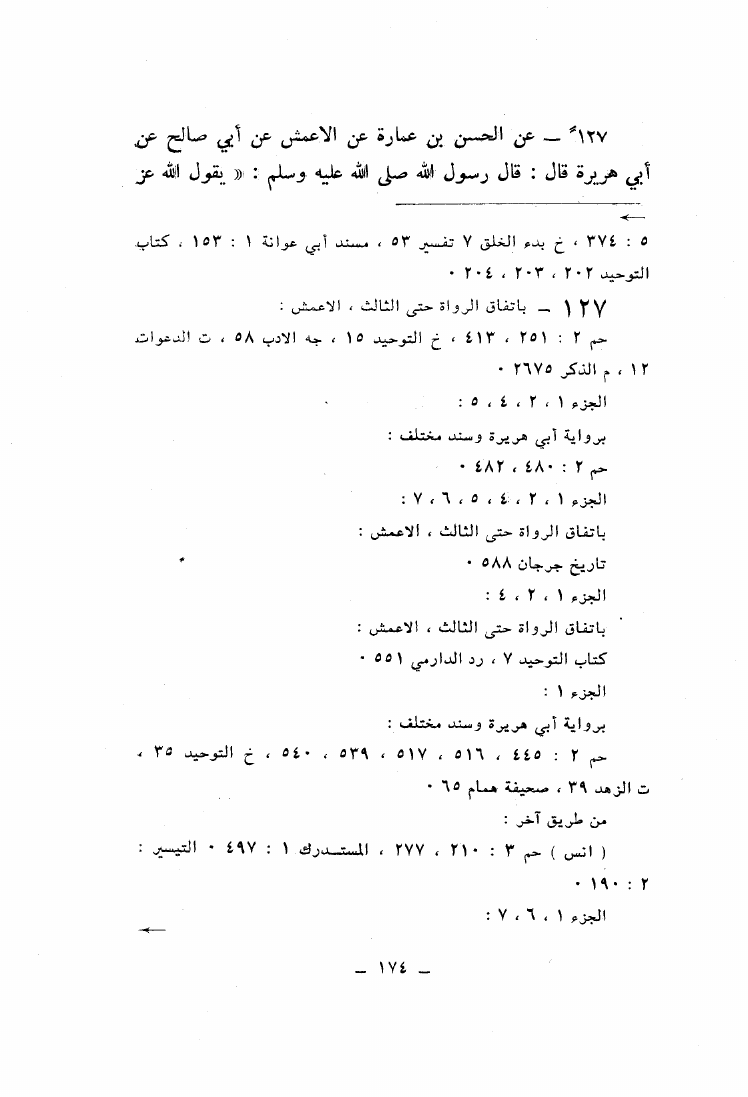 ١٢٧* — عن الحسن بن عمارة عن الاعمش عن أبي صالح عن
أبي هريرة قال : قال رسول الله صلى الله عليه وسلم : « يقول الله عز
←
٥ : ٣٧٤ ، خ بدء الخلق ٧ تفسير ٥٣ ، مسند أبي عوانة ١ : ١٥٣ ، كتاب
التوحيد ٢٠٢ ، ٢٠٣ ، ٢٠٤ ٠
١٢٧ — باتفاق الرواة حتى الثالث ، الاعمش :
حم ٢ : ٢٥١ ، ٤١٣ ، خ التوحيد ١٥ ، جه الادب ٥٨ ، ت الدعوات
١٢ ، م الذكر ٢٦٧٥ ٠
الجزء ١ ، ٢ ، ٤ ، ٥ :
برواية أبي هريرة وسند مختلف :
حم ٢ : ٤٨٠ ، ٤٨٢ ٠
الجزء ١ ، ٢ ، ٤ ، ٥ ، ٦ ، ٧ :
باتفاق الرواة حتى الثالث ، الاعمش :
تاريخ جرجان ٥٨٨ ٠
الجزء ١ ، ٢ ، ٤ :
باتفاق الرواة حتى الثالث ، الاعمش :
كتاب التوحيد ٧ ، رد الدارمي ٥٥١ ٠
الجزء ١ :
برواية أبي هريرة وسند مختلف :
حم ٢ : ٤٤٥ ، ٥١٦ ، ٥١٧ ، ٥٣٩ ، ٥٤٠ ، خ التوحيد ٣٥ ،
ت الزهد ٣٩ ، صحيفة همام ٦٥ ٠
من طريق آخر :
( انس ) حم ٣ : ٢١٠ ، ٢٧٧ ، المستدرك ١ : ٤٩٧ ٠ التيسير :
٢ : ١٩٠ ٠
الجزء ١ ، ٦ ، ٧ :
←
— ١٧٤ —